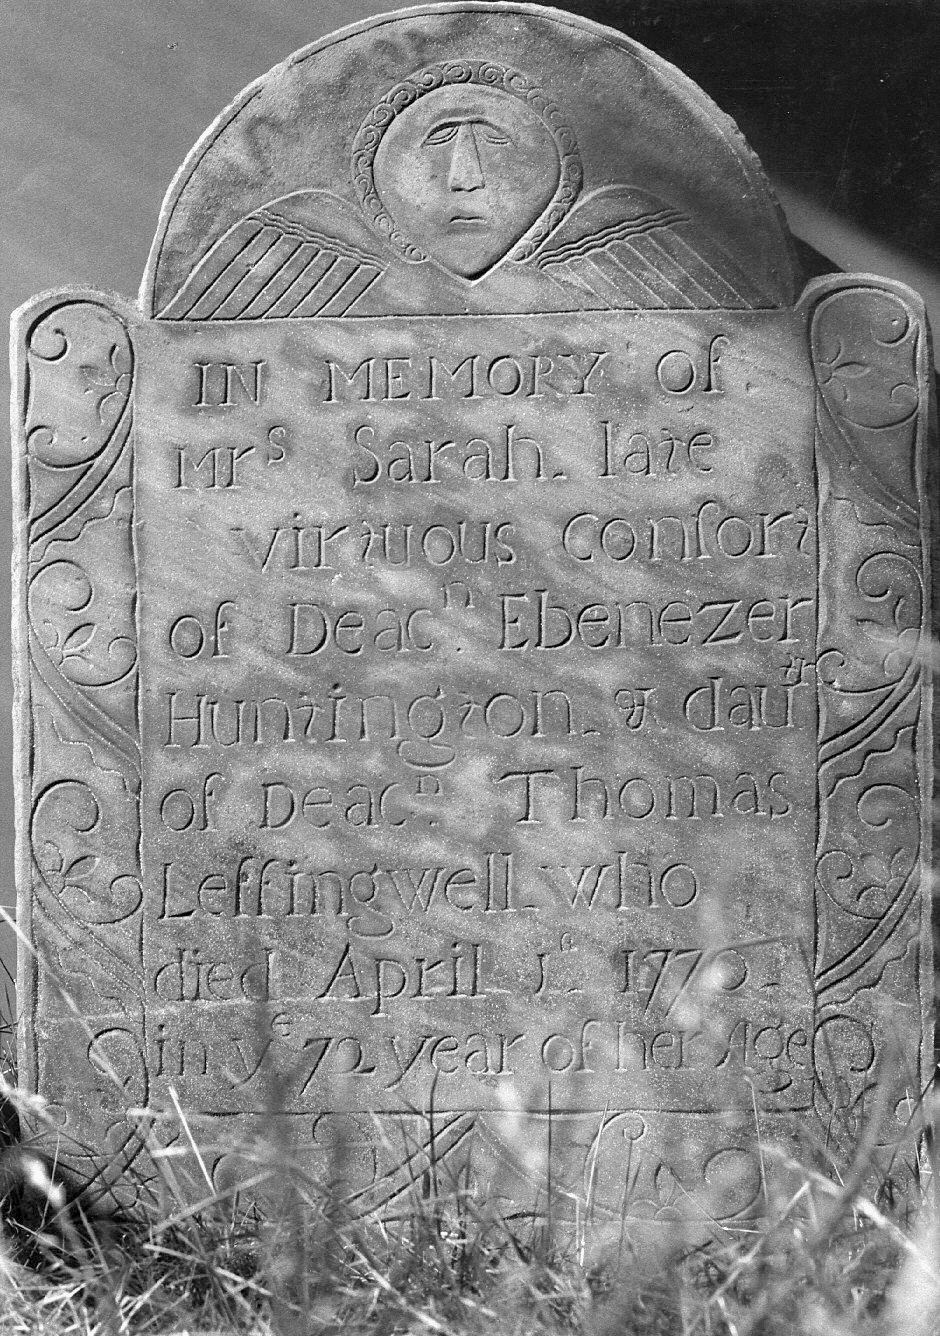 IN MEMORY of
Mrˢ Sarah. late
virtuous conſort
of Deacⁿ. Ebenezer
Huntington. & dauᵗʳ
of Deacⁿ. Thomas
Leffingwell. who
died April 1ˢᵗ. 1770.
in yᵉ 72 year of her Age